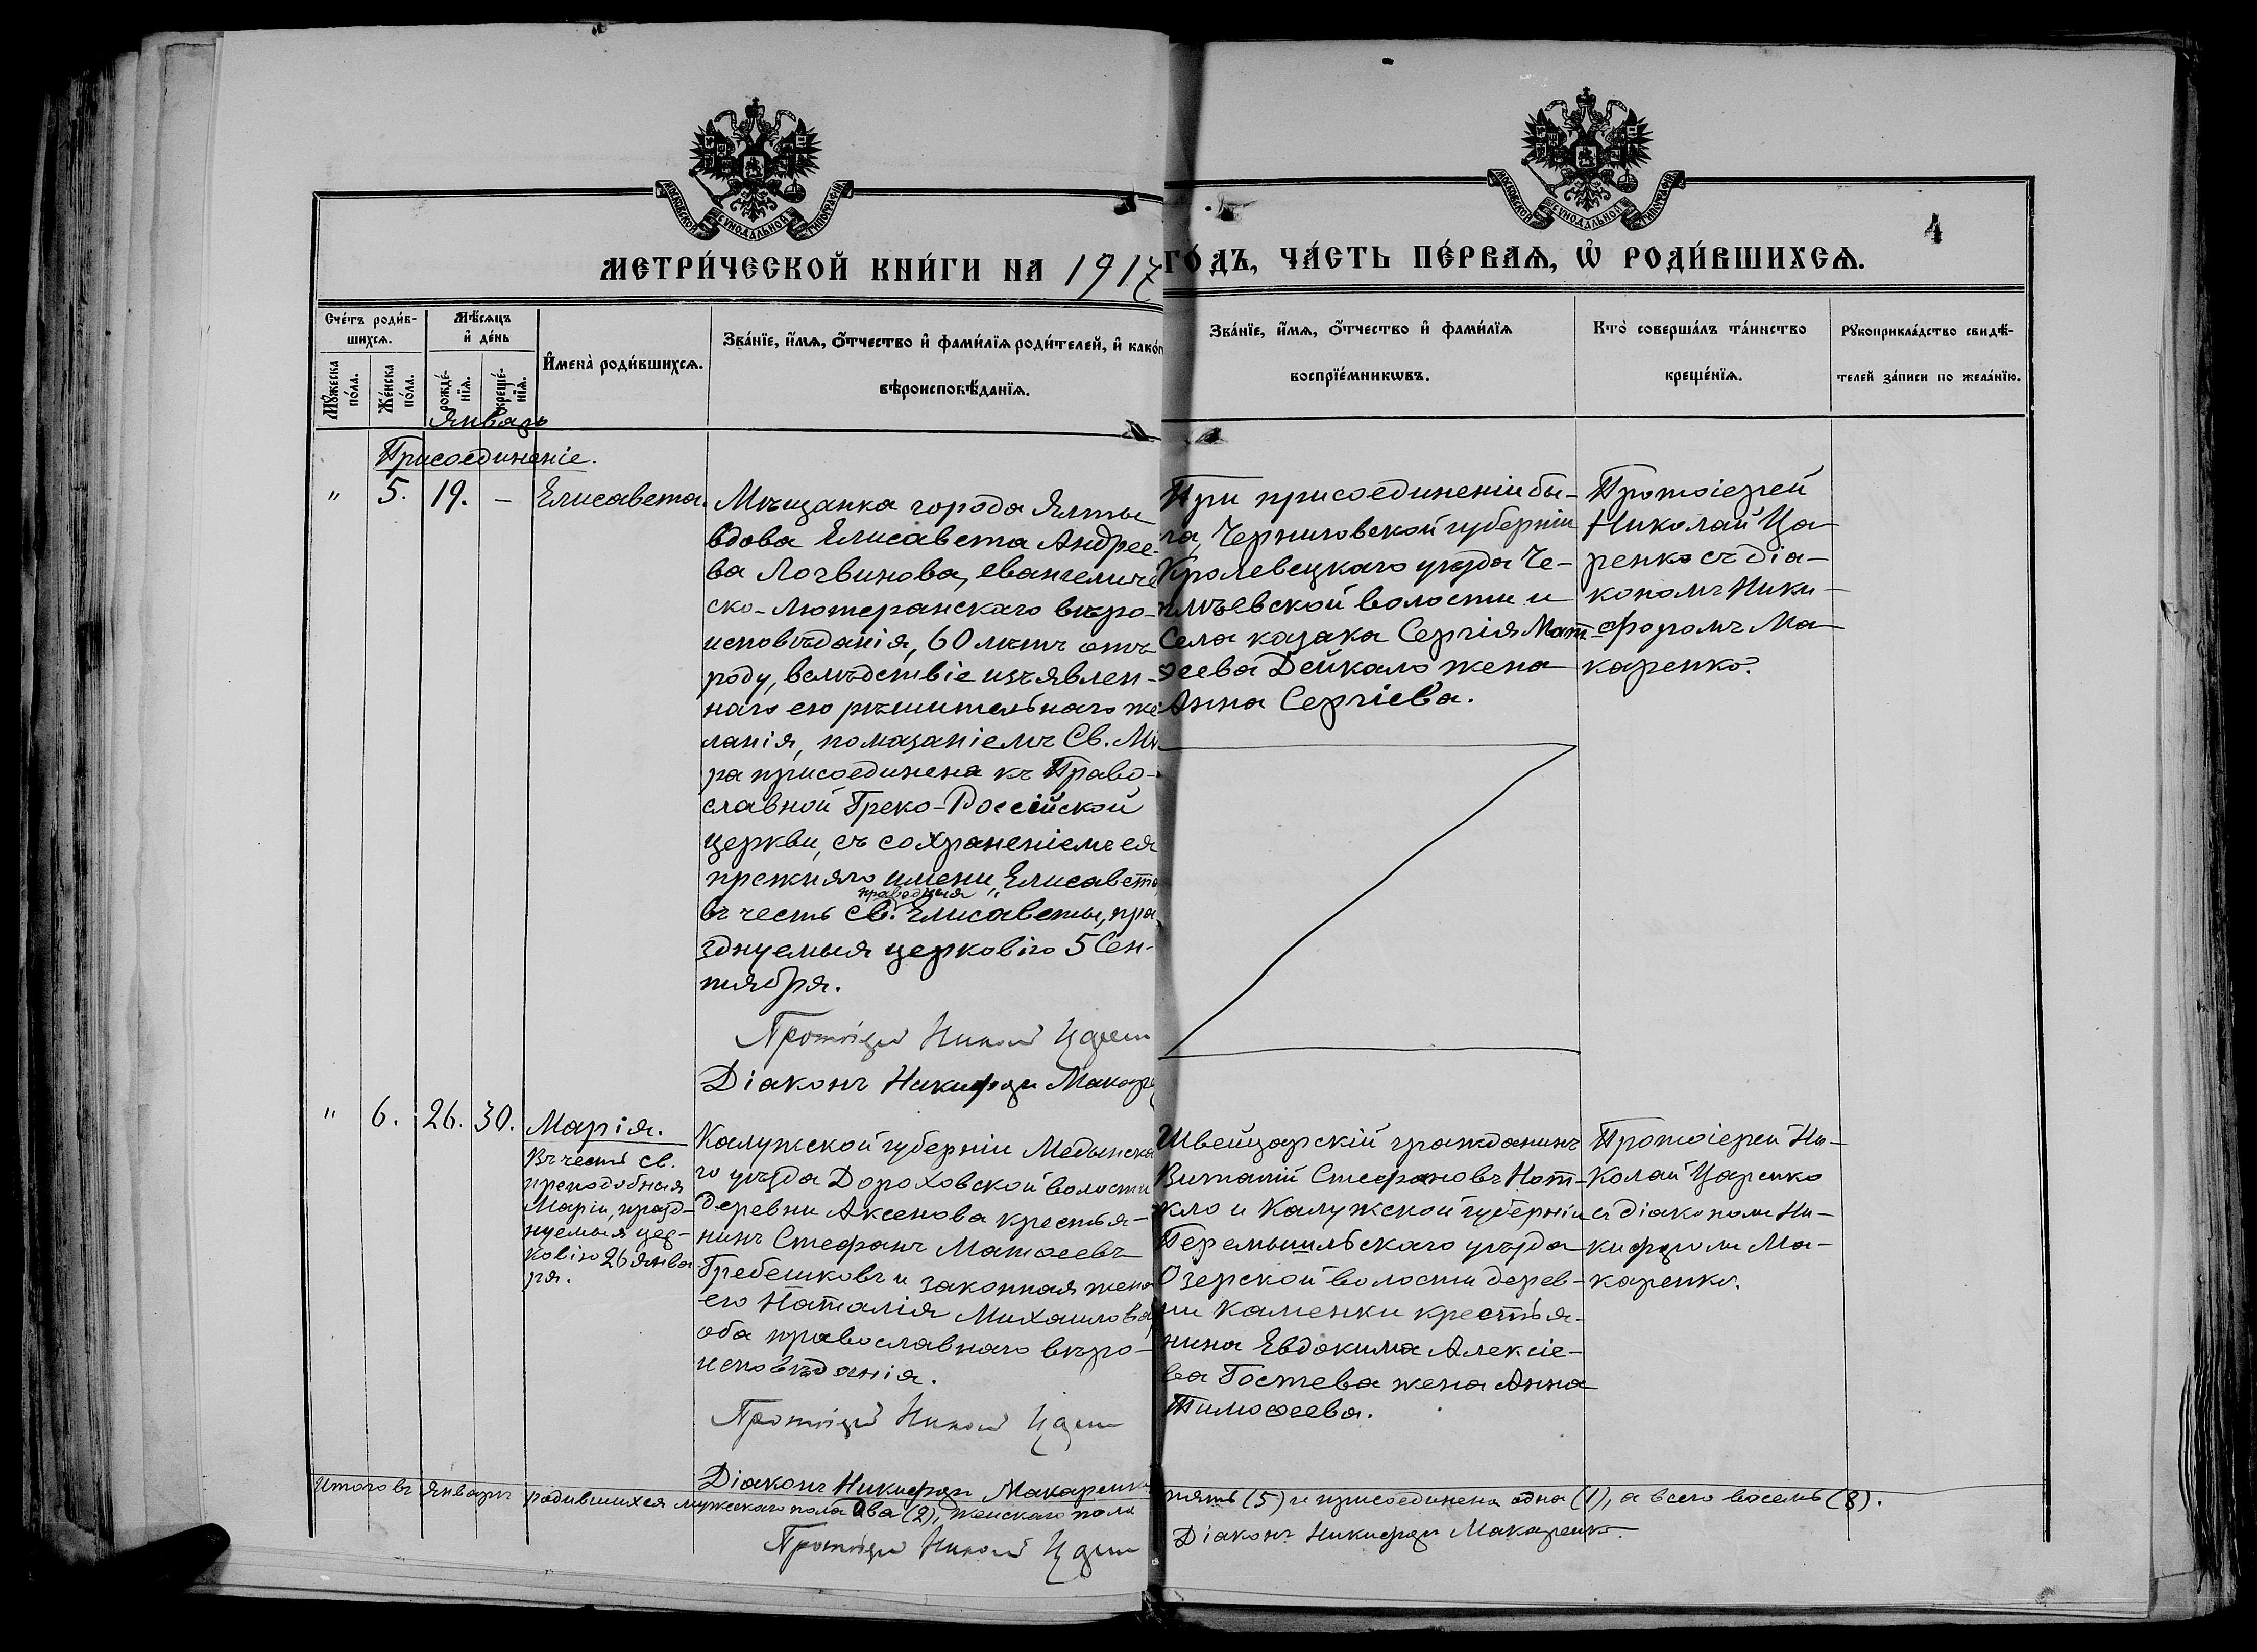 МОСКОВСКОЙ СѴНОДАЛЬНОЙ ТИПОГРАФІИ
МОСКОВСКОЙ СѴНОДАЛЬНОЙ ТИПОГРАФІИ
4
МЕТРИ́ЧЕСКОЙ КНИ́ГИ НА 1917 ГО́ДЪ, ЧА́СТЬ ПЕ́РВАѦ, Ѽ РОДИ́ВШИХСѦ.
Сче́тъ роди́в-
шихсѧ.
Мꙋ́жеска по́ла.
Же́нска по́ла.
Мѣ́сѧцъ
и҆ де́нь
рожде́-
нїѧ.
креще́-
нїѧ.
И҆мена̀ роди́вшихсѧ.
Зва́нїе, и҆́мѧ, ѻ҆́тчество и҆ фамн́лїѧ роди́телей, и҆ како́г
вѣроисповѣ́данїѧ.
Зва́нїе, и҆́мѧ, ѻ҆́тчество и҆ фами́лїѧ
воспрїе́мникѡвъ.
Кто̀ соверша́лъ та́инство
креще́нїѧ.
Рꙋкоприкла́дство свидѣ́-
телей за́писи по жела́нїю.
Январь
Присоединеніе.
" 5. 19. – Елисавета.
Мѣщанка города Ялты
вдова Елисавета Андрее-
ва Логвинова, евангеличе
ско-лютеранскаго вѣро-
исповѣданія, 60 лѣтъ отъ
роду, вслѣдствіе изъявлен-
наго ею рѣшительнаго же
ланія, помазаніемъ Св. Мѵ
ра присоединена къ Право-
славной Греко-Россійской
церкви, съ сохраненіемъ ея
прежняго имени „Елисавета
праведныя
въ честь св. Елисаветы, пра
зднуемыя церковію 5 Сен-
тября.
Протоіерей Николай Царен
Діаконъ Никифоръ Макаре
При присоединеніи бы-
ла, Черниговской губерніи
Кролевецкаго уѣзда Че-
плѣевской волости и
села казака Сергія Мат-
ѳеева Дейкало жена
Анна Сергіева.
Протоіерей
Николай Ца-
ренко съ діа-
кономъ Ники-
форомъ Ма-
каренко.
" 6. 26. 30. Марія.
Въ честь св.
преподобныя
Маріи, празд-
нуемыя цер-
ковію 26 янва
ря.
Калужской губерніи Медынска
го уѣзда Дороховской волости
деревни Аксенова крестья-
нинъ Стефанъ Матѳеевъ
Гребешковъ и законная жена
его Наталія Михаилова,
оба православнаго вѣро-
исповѣданія.
Протоіерей Николай Царен
Діаконъ Никифоръ Макаренко
Швейцарскій гражданинъ
Виталій Стефановъ Нат-
кло и Калужской губерніи
Перемышльскаго уѣзда
Озерской волости дерев-
ни Каменки крестья-
нина Евдокима Алексіе-
ва Гостева жена Анна
Тимоѳеева.
Протоіерей Ни-
колай Царенко
съ діакономъ Ни-
кифоромъ Ма-
каренко.
Итого въ Январѣ родившихся мужескаго пола два (2), женскаго пола пять (5) и присоединена одна (1), а всего восемь (8).
Протоіерей Николай Царен
Діаконъ Никифоръ Макаренко.